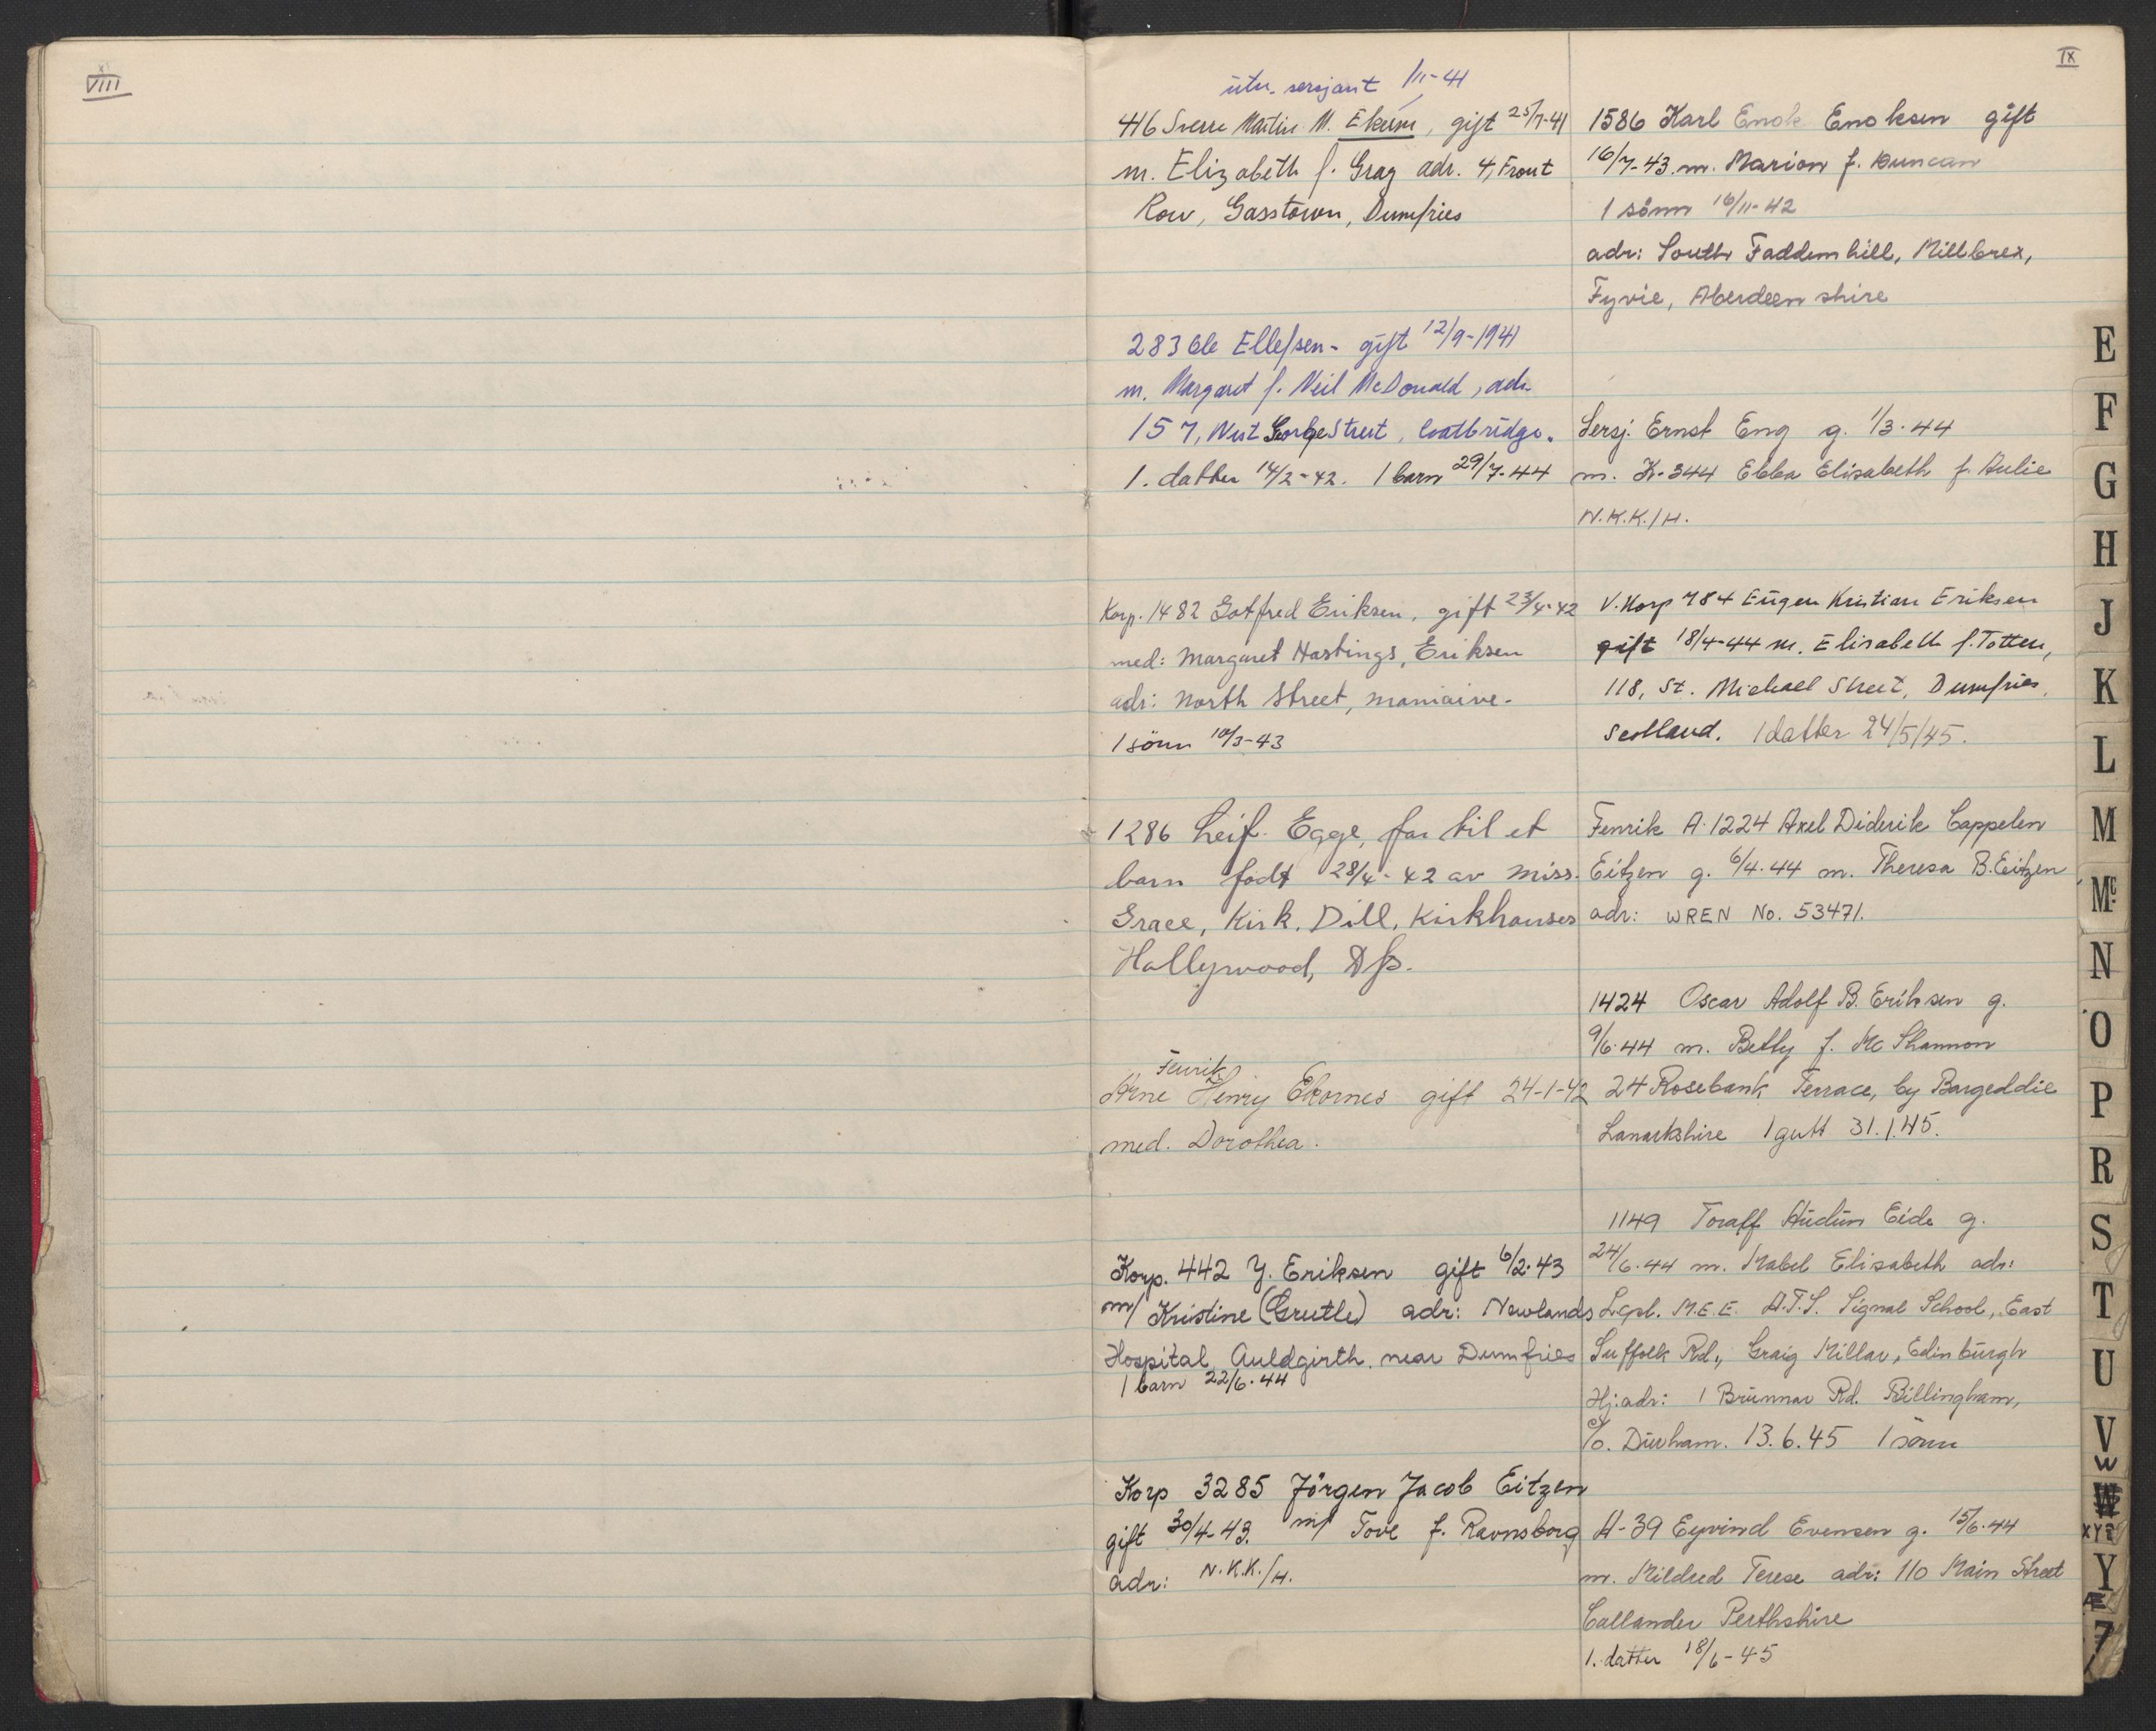 VIII
IX
utn. sersjant 1/11-41
416 Sverre Martin M. Ekrem, gift 25/7-41
m. Elizabeth f. Gray adr. 4, Front
Row, Gasstown, Dumfries
283 Ole Ellefsen - gift 12/9-1941
m. Margaret f. Neil McDonald, adr.
157, West George Street, Coatbridge.
1. datter 14/2-42. 1 barn 29/7-44
Korp. 1482 Gotfred Eriksen, gift 23/4-42
med: Margaret Hastings, Eriksen
adr: North Street, Moniaive.
1 sönn 10/3-43
1286 Leif Egge, far til et
barn födt 28/4-42 av Miss.
Grace, Kirk. Dill, Kirkhouses
Hollywood, Dfs.
Fenrik
Arne Henry Ekornes gift 24-1-42
med. Dorothea.
Korp. 442 Y. Eriksen gift 6/2-43
m/ Kristine (Grutle) adr: Newlands
Hospital, Auldgirth, near Dumfries
1 barn 22/6-44
Korp 3285 Jörgen Jacob Eitzen
gift 30/4-43. m/ Tove f. Ravnsborg
adr: N.K.K./H.
1586 Karl Enok Enoksen gift
16/7-43. m. Marion f. Duncan
1 sönn 16/11-42
adr: South Faddenhill, Millbrex,
Fyvie, Aberdeenshire
Sersj. Ernst Eng g. 1/3-44
m. K-344 Ebba Elisabeth f. Aulie
N.K.K./H.
V. Korp 784 Eugen Kristian Eriksen
gift 18/4-44 m. Elisabeth f. Totten,
118, St. Michael Street, Dumfries,
Scotland. 1 datter 24/5/45.
Fenrik A. 1224 Axel Diderik Cappelen
Eitzen g. 6/4.44 m. Theresa B. Eitzen
adr: WREN No. 53471.
1424 Oscar Adolf B. Eriksen g.
9/6.44 m. Betty f. Mc Shannon
24 Rosebank Terrace, by Bargeddie
Lanarkshire 1 gutt 31.1.45.
1149 Toralf Audun Eide g.
24/6.44 m. Mabel Elisabeth adr:
Lcpl. M.E.E. A.T.S. Signal School, East
Suffolk Rd., Graig Millar, Edinburgh
Hj.adr: 1 Brunnar Rd. Billingham,
c/o. Durham. 13.6.45 1 sönn
A-39 Eyvind Evensen g. 15/6.44
m. Mildred Terese adr: 110 Main Street
Callander Perthshire
1. datter 18/6-45
E
F
G
H
J
K
L
M
Mc
N
O
P
R
S
T
U
V
W
W
XYZ
Y
Æ